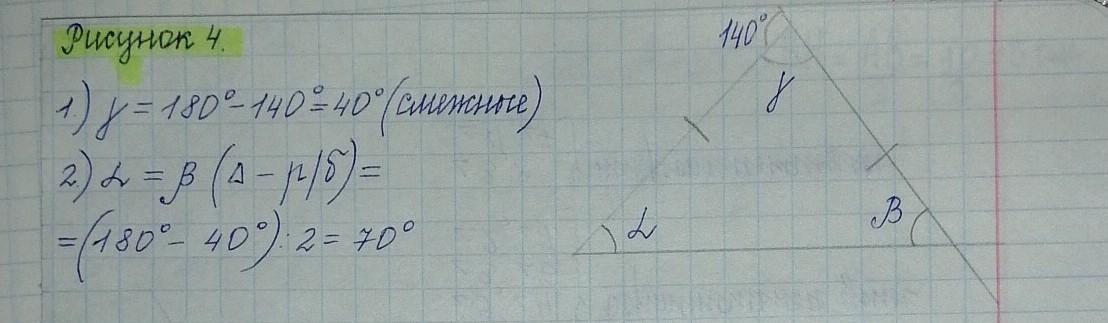 Рисунок 4.
1.) γ = 180° - 140° = 40° (смежные)
2.) α = β (Δ - р/б) =
= (180° - 40°) : 2 = 70°
140°
γ
α
β